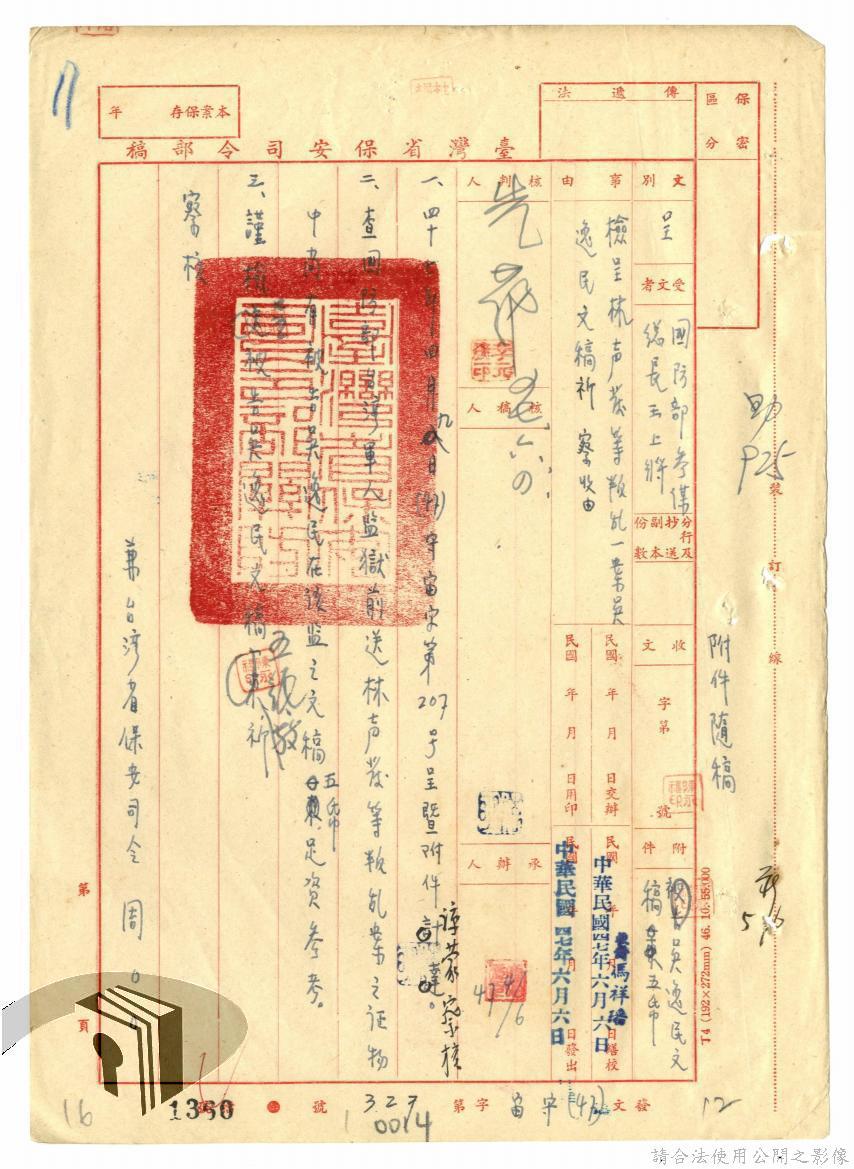 保密區分
傳遞法
本案保存 年
臺灣省保安司令部稿
文別
呈
受文者
國防部參謀
總長王上將
分行及抄送副本份數
事由
檢呈林声發等叛乱一案吳
逸民文稿祈 察收由
收文 字第 號
附件
被告吳逸民文
稿 五帋
民國 年 月 日交辦
民國 年 月 日繕校
中華民國四七年六月六日
馮祥瑞
民國 年 月 日用印
民國 年 月 日發出
中華民國四七年六月六日
核判人
核稿人
承辦人
47 4/6
一、四十七年四月九日(47)守宙字第207号呈暨附件計達。
諒蒙察核
二、查國防部台灣軍人監獄前送林声發等叛乱案之证物
中尚有被告吳逸民在該監之文稿五帋足資參考。
三、謹檢呈被告吳逸民文稿五帋敬祈
察核
兼台灣省保安司令 周
附件隨稿
裝訂線
T4 (192×272mm) 46. 10. 55.000
第 頁
發文 (47) 守宙字第 327 號
12
0014
1360
16
17
請合法使用公開之影像